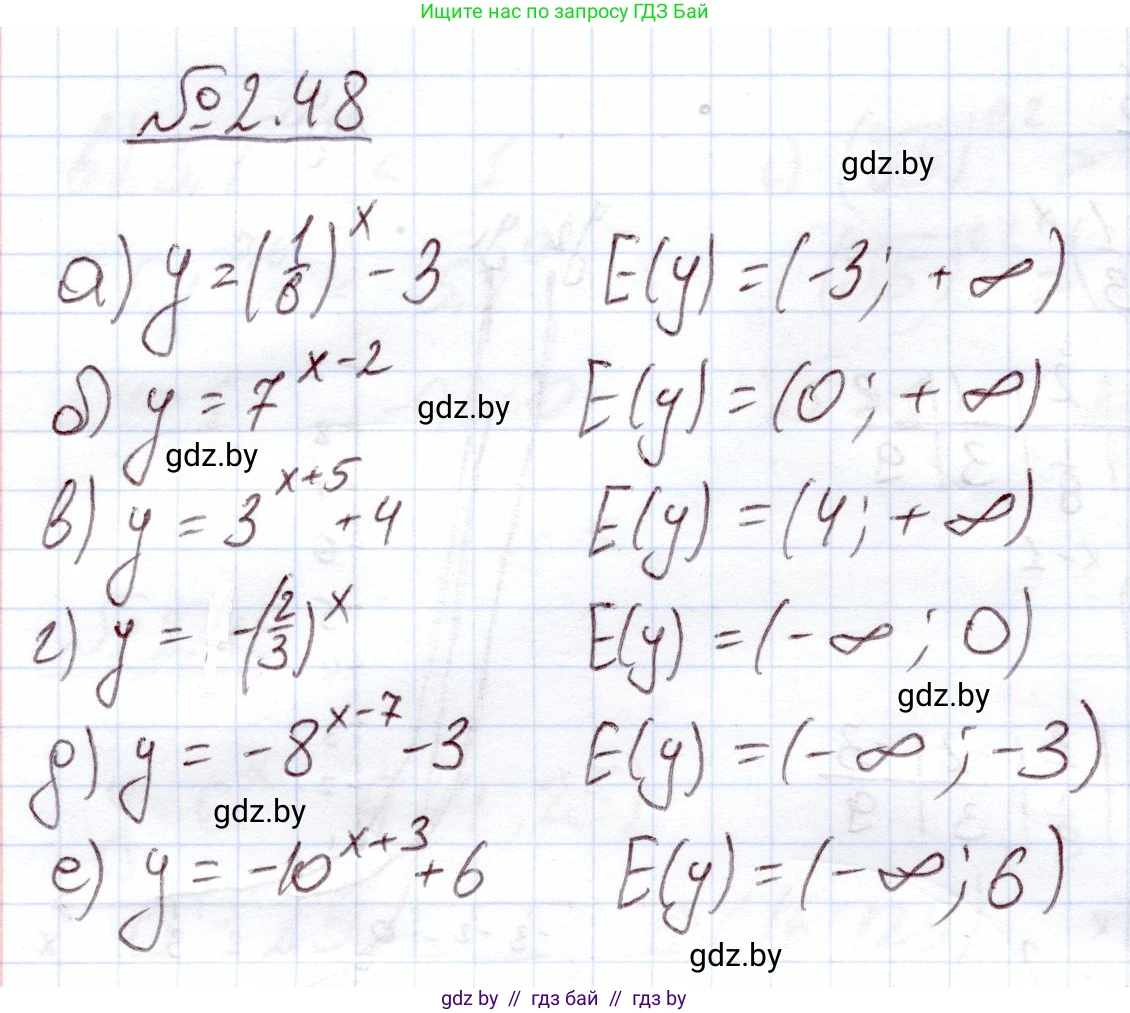 Ищите нас по запросу ГДЗ Бай
№2.48
gdz.by
а) y = (1/8)^x - 3 E(y) = (-3; +∞)
б) y = 7^(x-2) gdz.by E(y) = (0; +∞)
gdz.by
в) y = 3^(x+5) + 4 E(y) = (4; +∞)
г) y = -(2/3)^x E(y) = (-∞; 0)
gdz.by
д) y = -8^(x-7) - 3 E(y) = (-∞; -3)
gdz.by
е) y = -10^(x+3) + 6 E(y) = (-∞; 6)
gdz.by
gdz.by // гдз бай // gdz.by